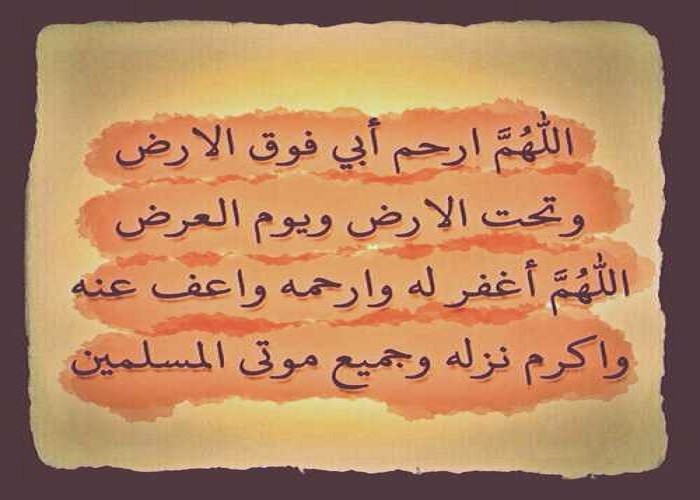 اللَّهُمَّ ارحم أبي فوق الارض
وتحت الارض ويوم العرض
اللَّهُمَّ أغفر له وارحمه واعف عنه
واكرم نزله وجميع موتى المسلمين